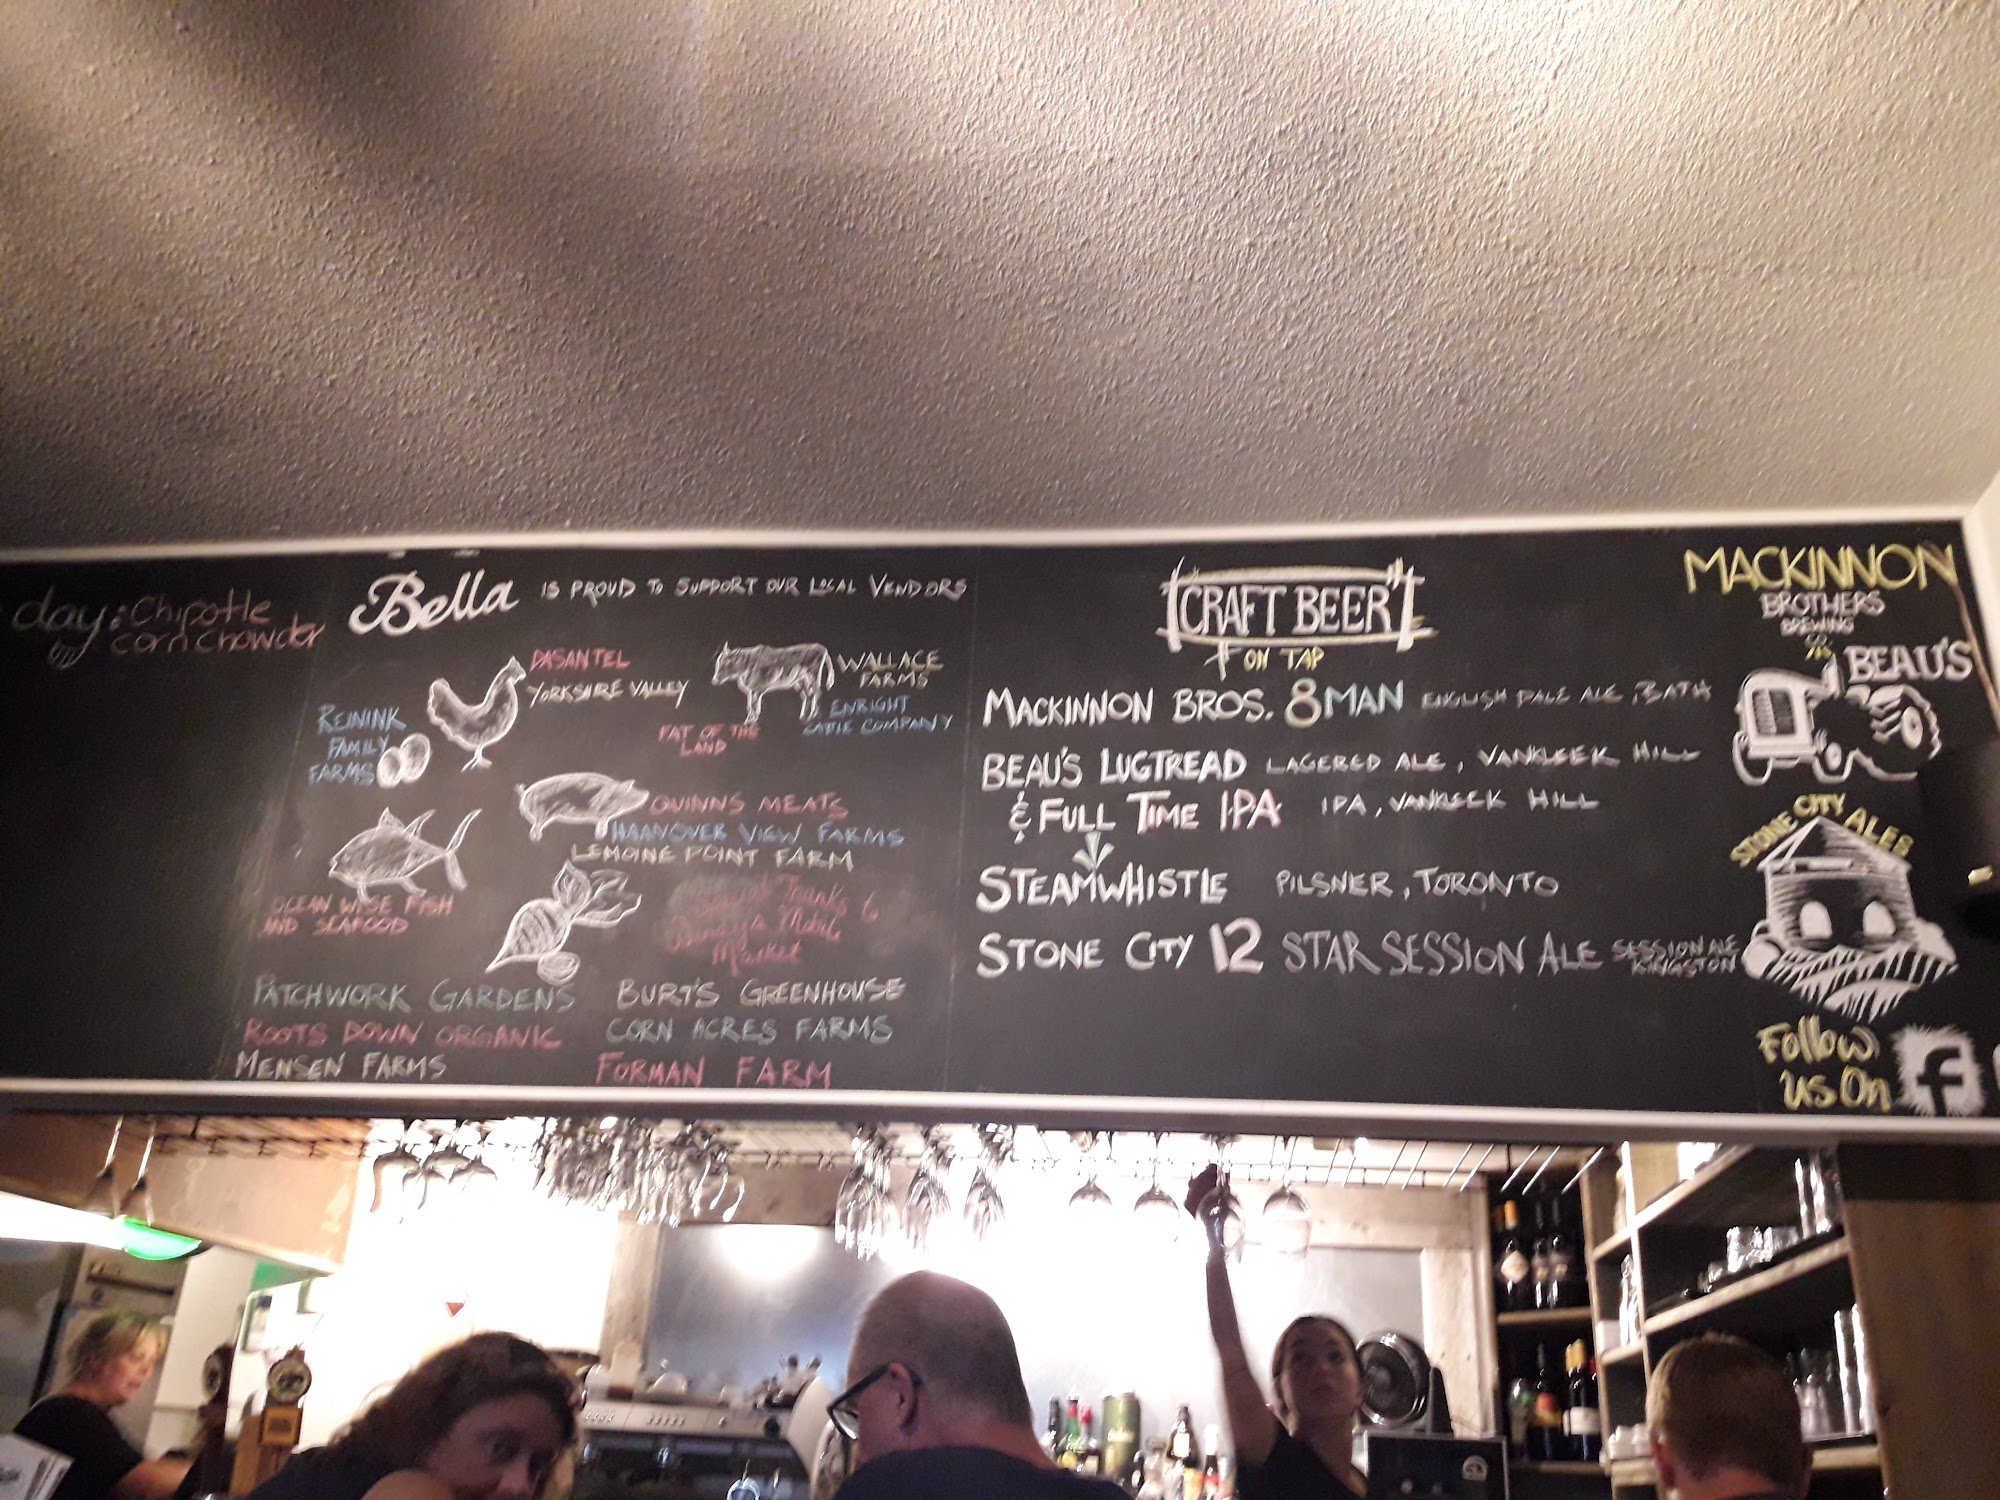 day: Chipotle
corn chowder
Bella IS PROUD TO SUPPORT OUR LOCAL VENDORS
DASANTEL
YORKSHIRE VALLEY
REININK
FAMILY
FARMS
WALLACE
FARMS
ENRIGHT
CATTLE COMPANY
FAT OF THE
LAND
QUINNS MEATS
HAANOVER VIEW FARMS
LEMOINE POINT FARM
OCEAN WISE FISH
AND SEAFOOD
Special Thanks to
Mobile
Market
PATCHWORK GARDENS
ROOTS DOWN ORGANIC
MENSEN FARMS
BURT'S GREENHOUSE
CORN ACRES FARMS
FORMAN FARM
CRAFT BEER
ON TAP
MACKINNON BROS. 8MAN ENGLISH PALE ALE, BATH
BEAU'S LUGTREAD LAGERED ALE, VANKLEEK HILL
& FULL TIME IPA IPA, VANKLEEK HILL
STEAMWHISTLE PILSNER, TORONTO
STONE CITY 12 STAR SESSION ALE SESSION ALE
KINGSTON
MACKINNON
BROTHERS
BREWING
Co
BEAU'S
STONE CITY ALES
Follow
us On
f